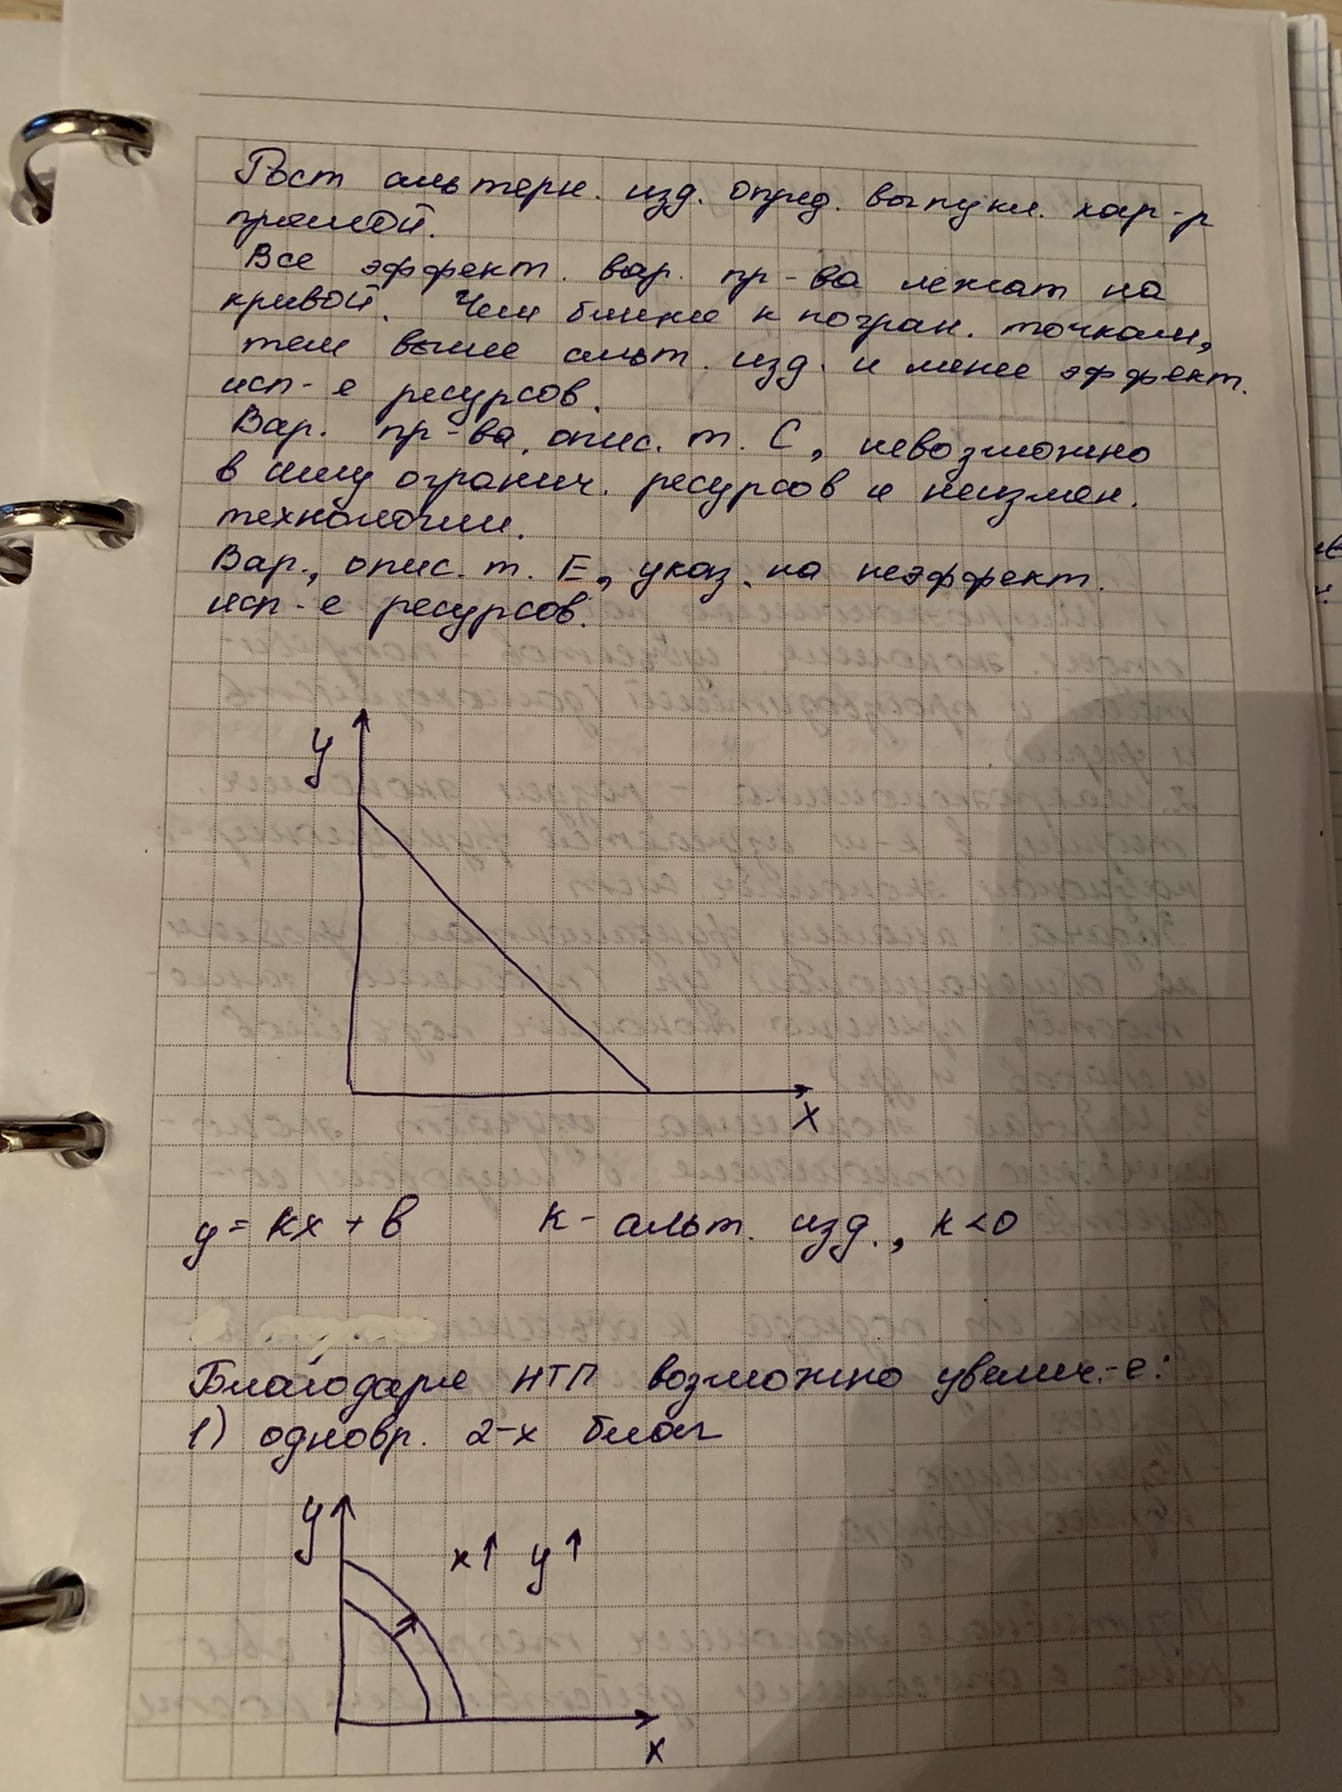 Рост альтерн. изд. опред. выпукл. хар-р
прямой.
Все эффект. вар. пр-ва лежат на
кривой. Чем ближе к погран. точкам,
тем выше альт. изд. и менее эффект.
исп-е ресурсов.
Вар. пр-ва, опис. т. С, невозможно
в силу огранич. ресурсов и неизмен.
технологии.
Вар., опис. т. Е, указ. на неэффект.
исп-е ресурсов.
y
x
y = kx + b k - альт. изд., k < 0
Благодаря НТП возможно увелич.-е:
1) одновр. 2-х благ
y
x↑ y↑
x